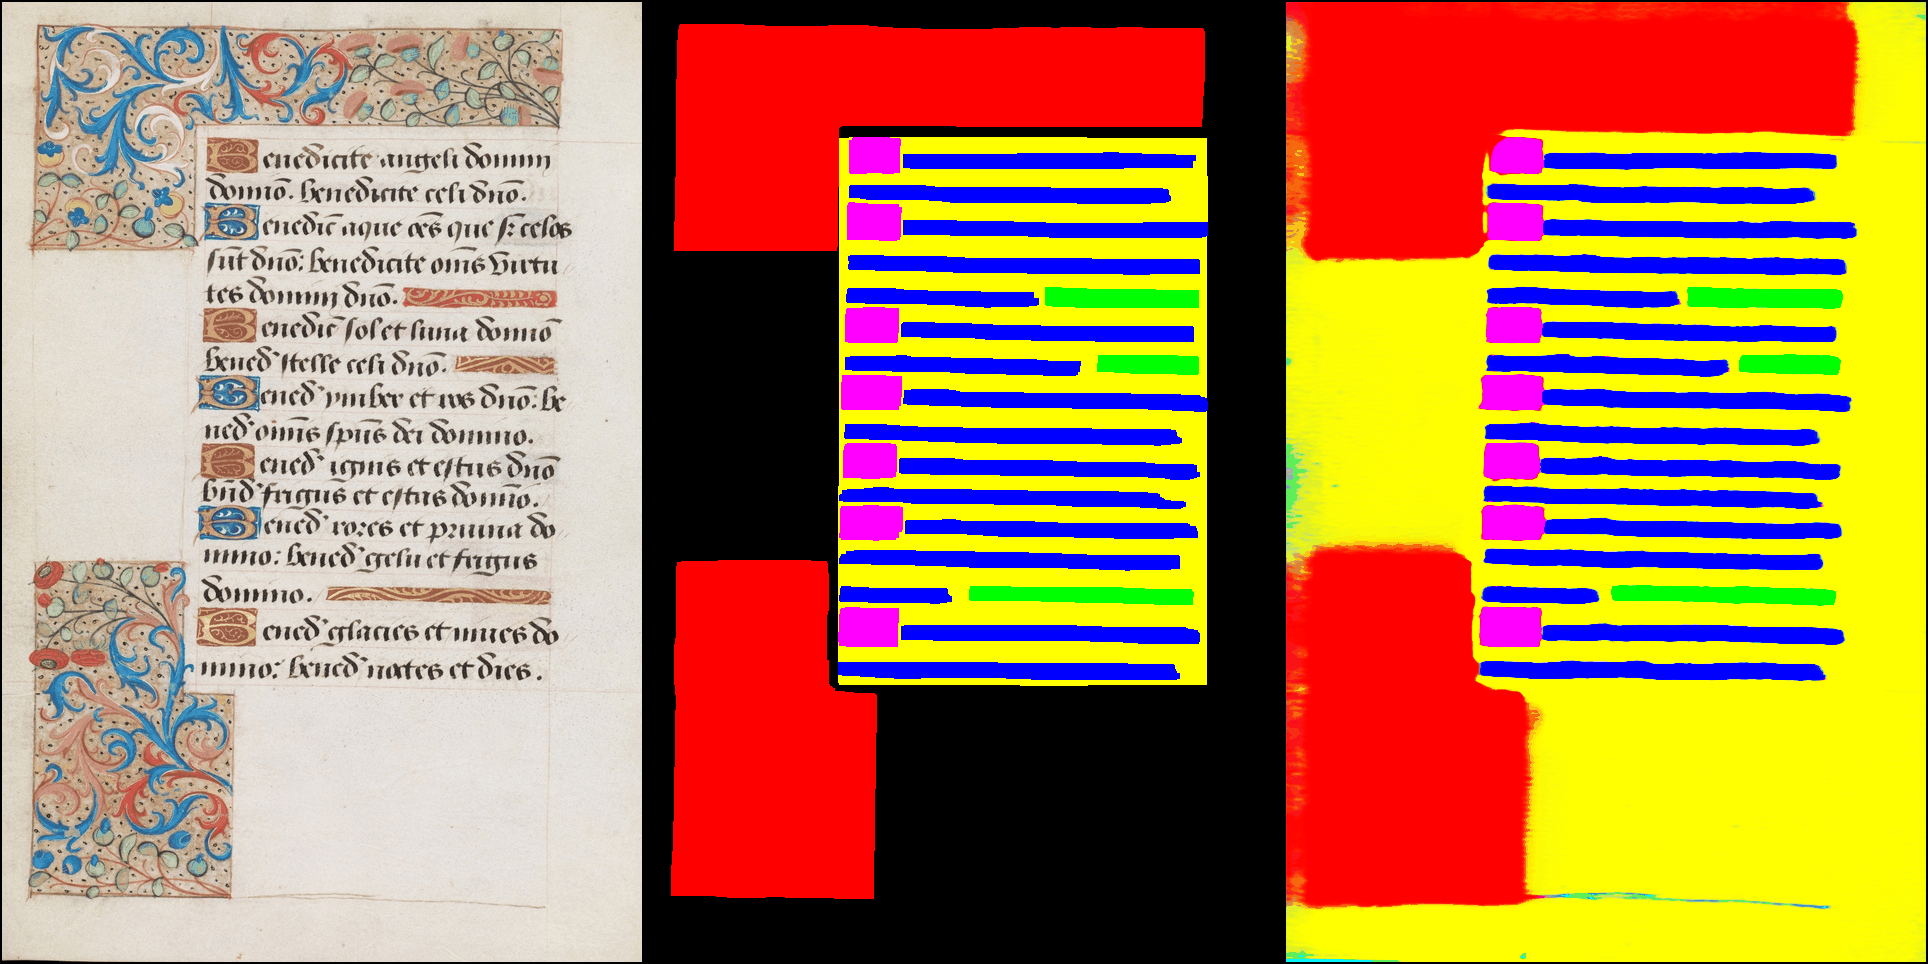 Benedicite angeli domini
domino. benedicite celi dn̄o.
Benedic̄ aque oēs que sr̄ celos
sūt dn̄o: benedicite om̄s virtu
tes domini dn̄o.
Benedic̄ sol et luna domino
bened' stelle celi dn̄o.
Bened' ymber et ros dn̄o: be
ned' om̄s sp̄us dei domino.
Bened' ignis et estus dn̄o
bn̄d' frigus et estas domino.
Bened' rores et pruina do
mino: bened' gelu et frigus
domino.
Bened' glacies et niues do
mino: bened' noctes et dies.